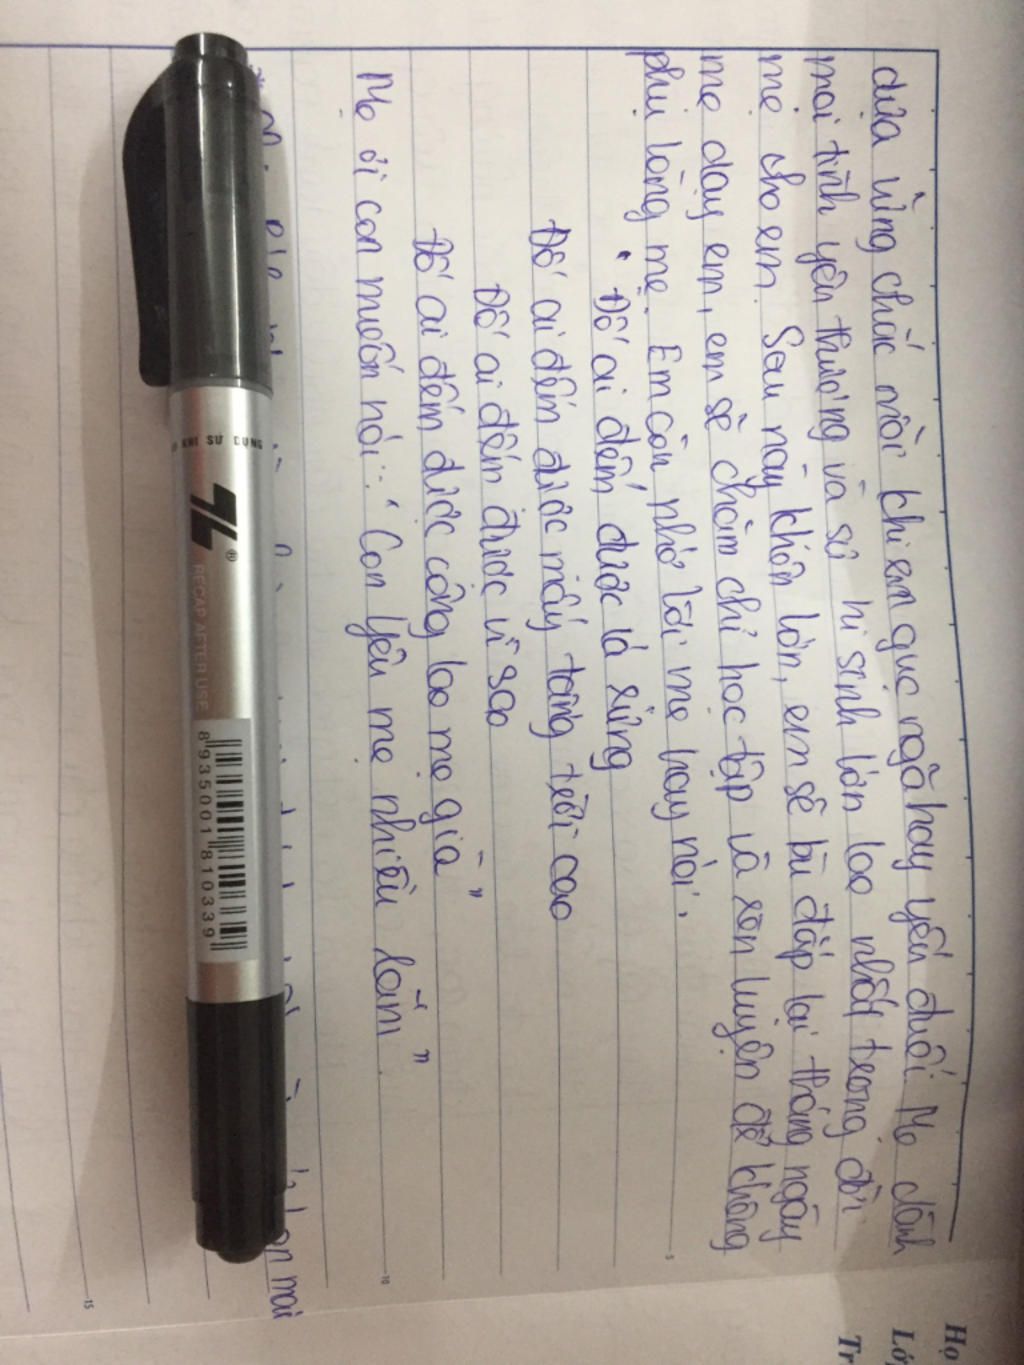 dựa vững chắc mỗi khi em gục ngã hay yếu đuối. Mẹ dành
mọi tình yêu thương và sự hi sinh lớn lao nhất trong đời
mẹ cho em. Sau này khôn lớn, em sẽ bù đắp lại tháng ngày
mẹ dạy em, em sẽ chăm chỉ học tập và rèn luyện để không
phụ lòng mẹ. Em còn nhớ lời mẹ hay nói.
" Đố ai đếm được lá rừng
Đố ai đếm được mấy tầng trời cao
Đố ai đếm được vì sao
Đố ai đếm được công lao mẹ già "
Mẹ ơi con muốn nói: " Con yêu mẹ nhiều lắm ".
KHI SỬ DỤNG
ZL®
RECAP AFTER USE
8 935001 810339
mai
5
10
15
Họ
Lớ
Tr